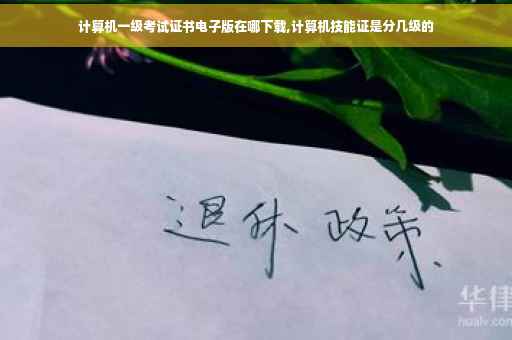 计算机一级考试证书电子版在哪下载,计算机技能证是分几级的
退休 政策
华律
hualv.com